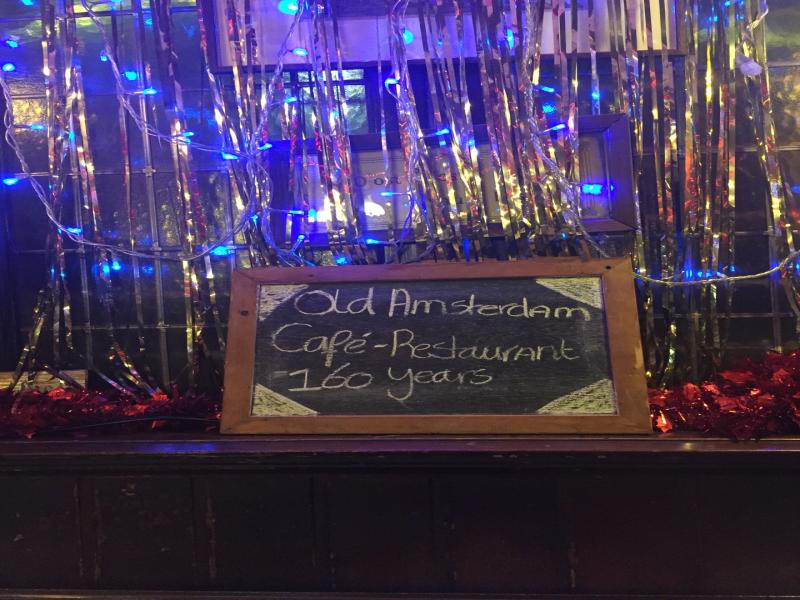 Old Amsterdam
Café-Restaurant
-160 years